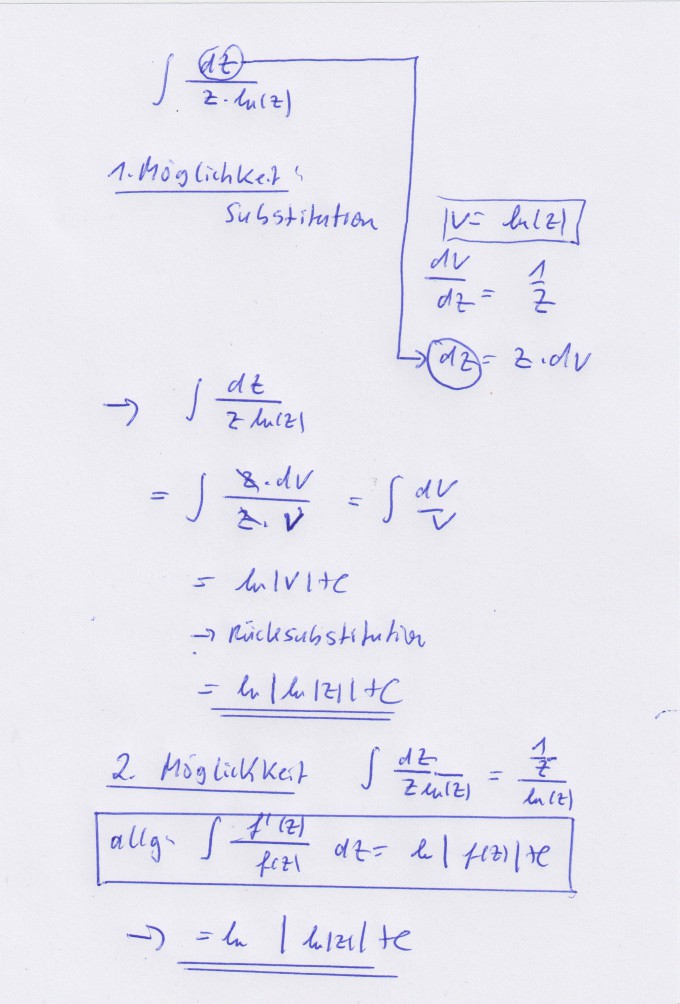 ∫ dz / (z · ln(z))
1. Möglichkeit:
Substitution
|v = ln(z)|
dv/dz = 1/z
dz = z · dv
→ ∫ dz / (z ln(z))
= ∫ z · dv / (z · v) = ∫ dv / v
= ln |v| + C
→ Rücksubstitution
= ln | ln |z| | + C
2. Möglichkeit ∫ dz / (z ln(z)) = (1/z) / ln(z)
allg. ∫ f'(z) / f(z) dz = ln | f(z) | + C
→ = ln | ln |z| | + C